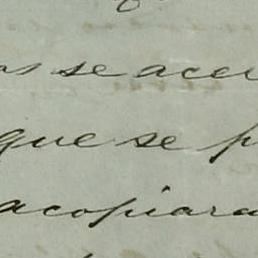 as se acer
que se p
acopiara